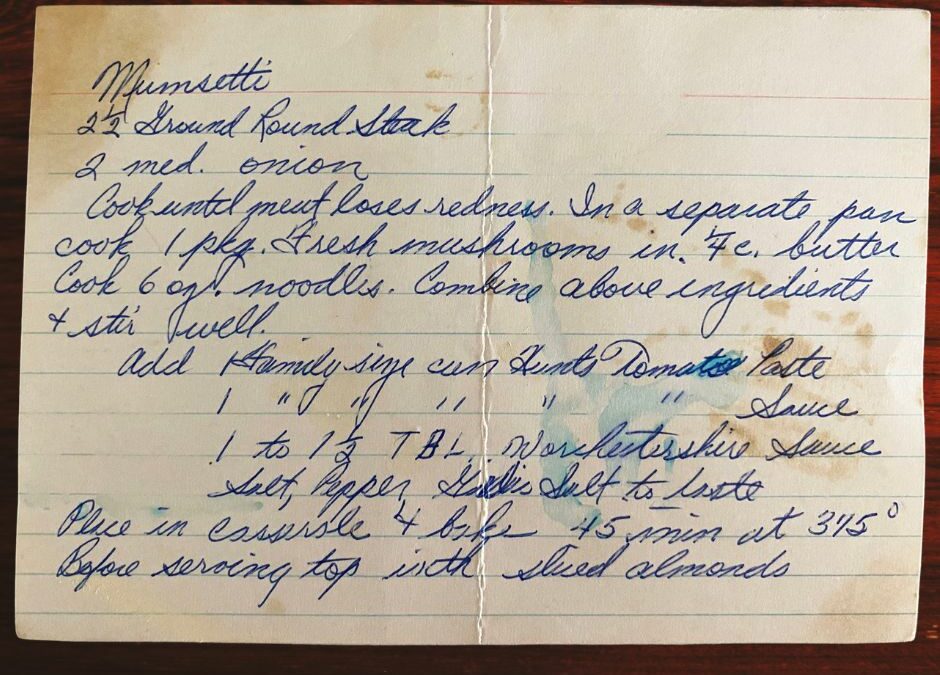 Mumsetti
2 1/2 Ground Round Steak
2 med. onion
Cook until meat loses redness. In a separate pan
cook 1 pkg. Fresh mushrooms in 1/4 c. butter
Cook 6 oz. noodles. Combine above ingredients
+ stir well.
Add 1 Family size can Hunts Tomatoe Paste
1 " " " " " Sauce
1 to 1 1/2 TBL. Worchestershire Sauce
Salt, Pepper, Garlic Salt to taste
Place in casserole + bake 45 min at 375°
Before serving top with slied almonds